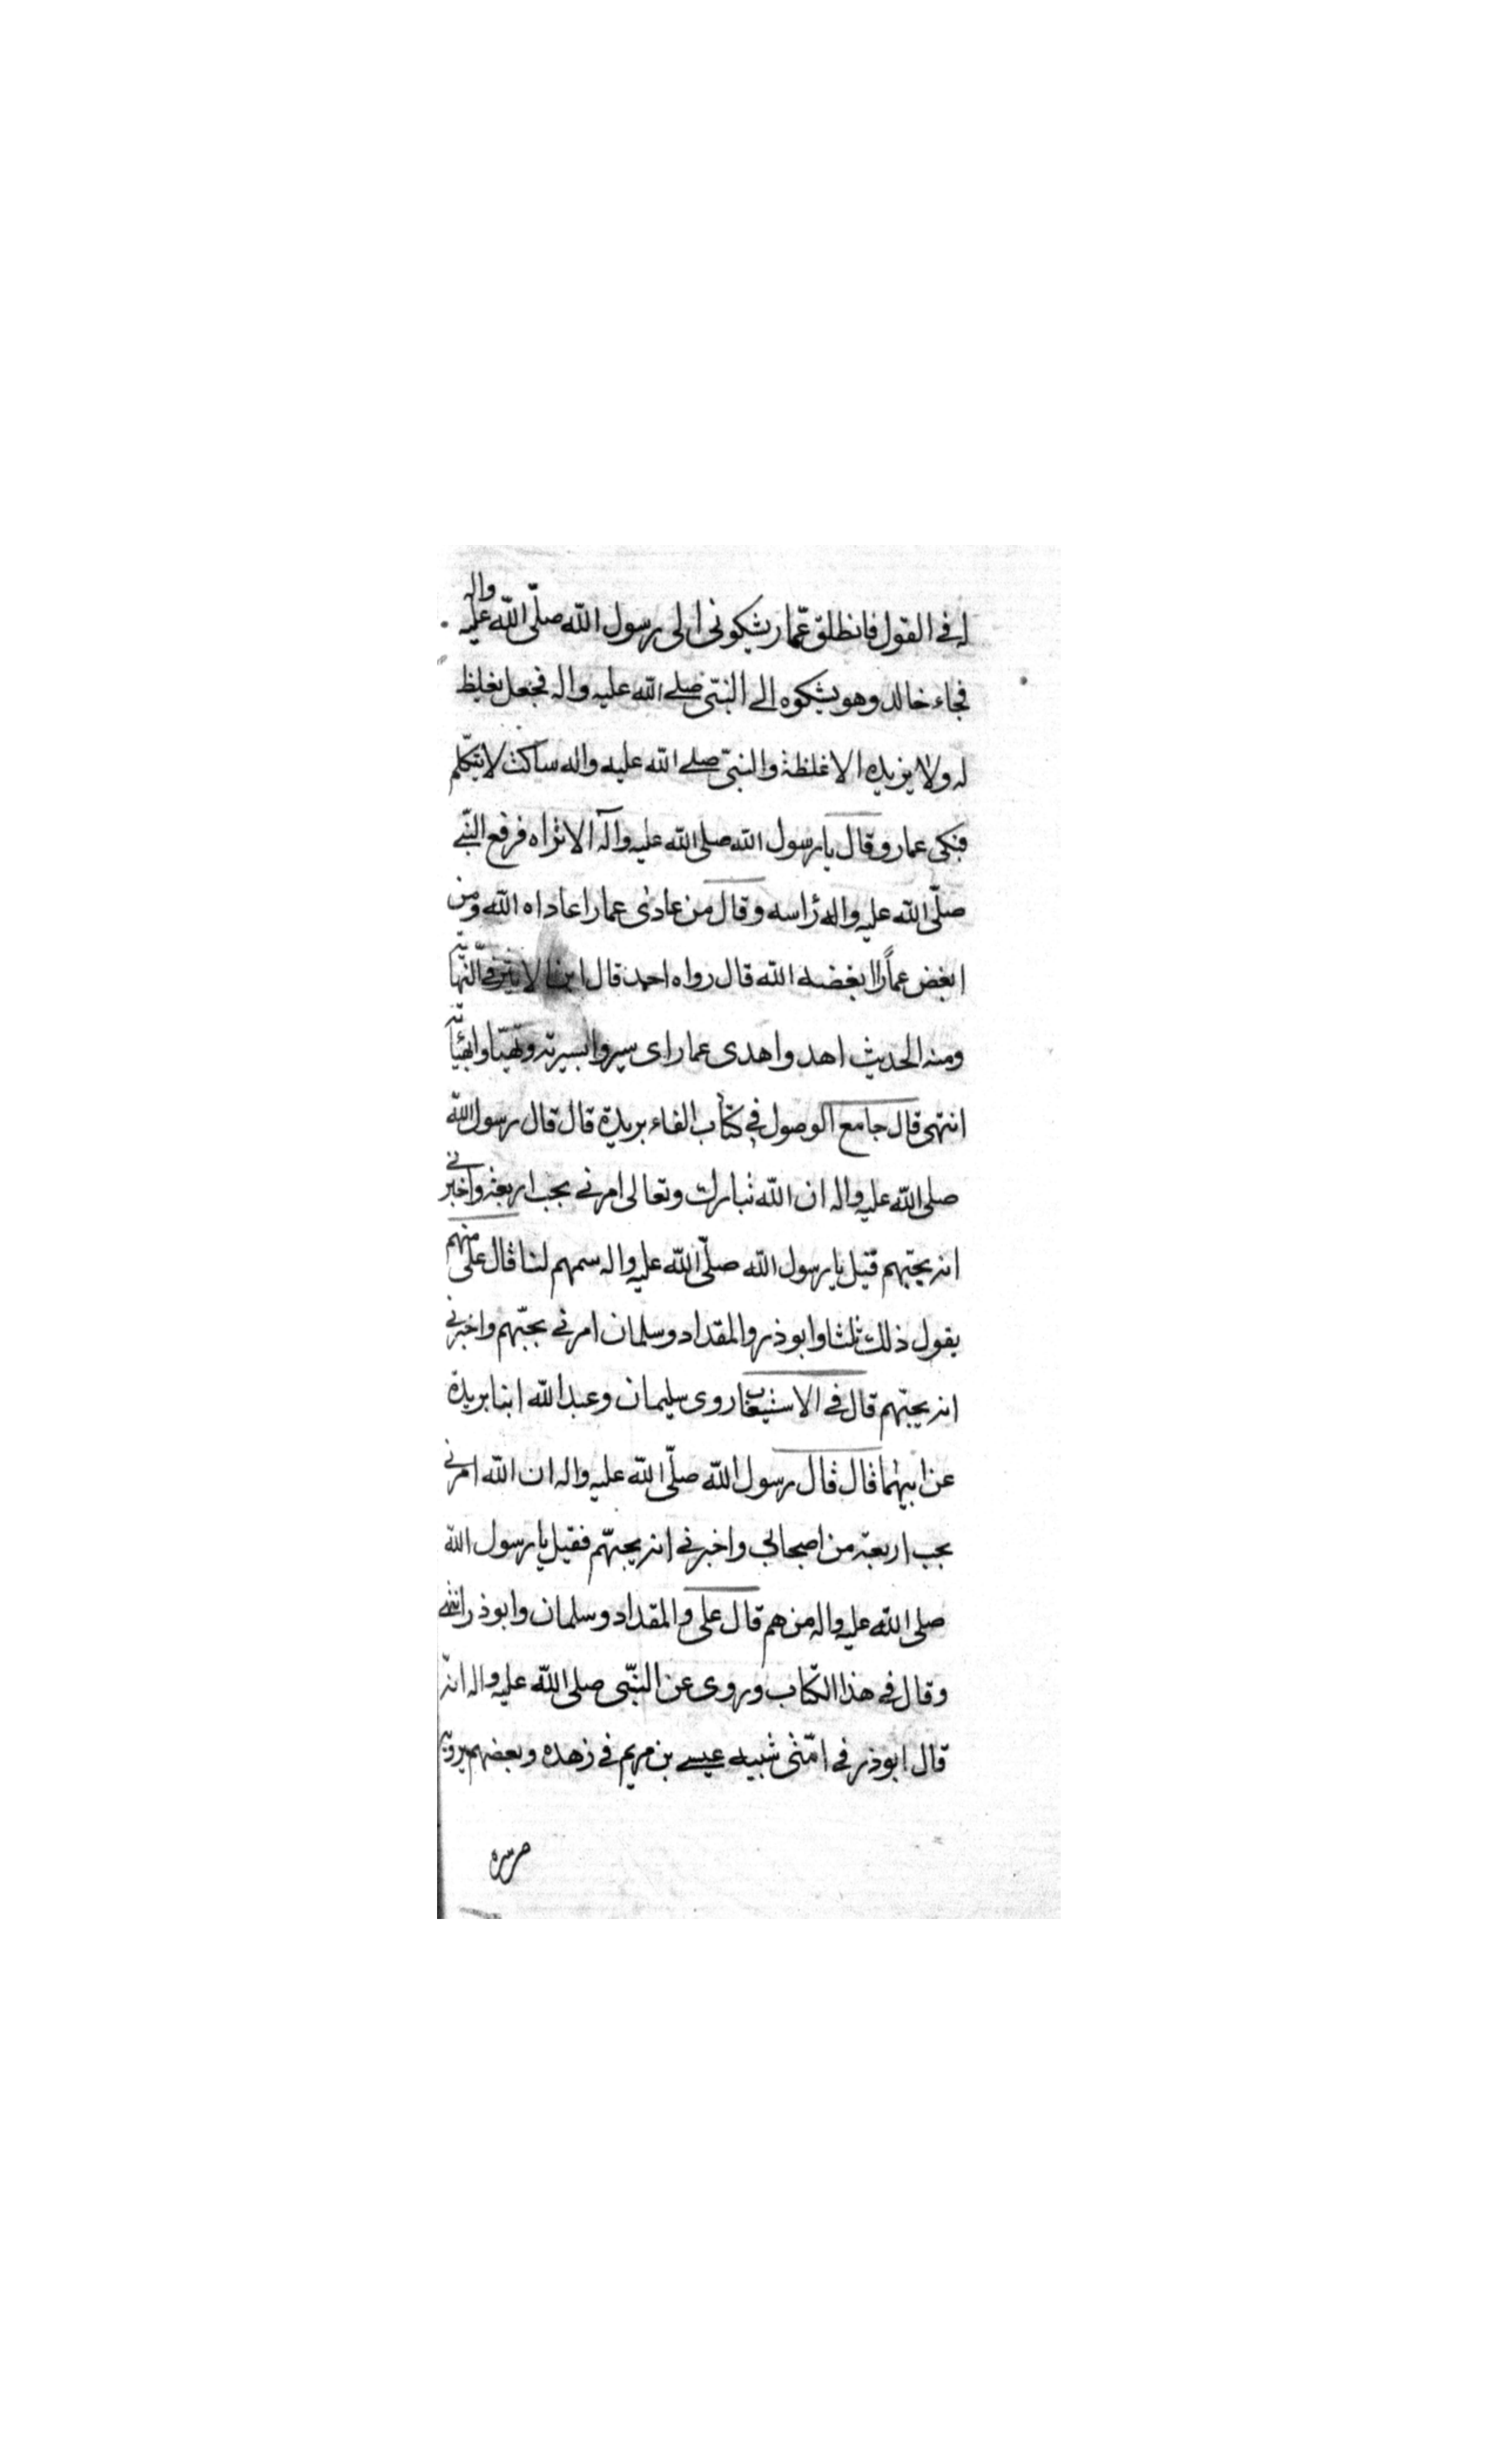 له في القول فانطلق عمّار يشكوني الى رسول الله صلّى الله عليه واله
فجاء خالد وهو يشكوه الى النبّي صلى الله عليه واله فجعل يغلظ
له ولا يزيده الا غلظة والنبّي صلى الله عليه واله ساكت لا يتكلّم
فبكى عمار وقال يا رسول الله صلى الله عليه وآله الا تراه فرفع النبّي
صلّى الله عليه واله رأسه وقال من عادى عمارا عاداه الله ومن
ابغض عماراً ابغضه الله قال رواه احمد قال ابن الاثير في النّهاية
ومنه الحديث اهدوا هدى عمار اى سيروا بسيرته وتهيّاوا بهيأته
انتهى قال جامع الوصول في كتاب الفاء بريدة قال قال رسول الله
صلى الله عليه واله ان الله تبارك وتعالى امرني بحب اربعة واخبرني
انه يحبّهم قيل يا رسول الله صلّى الله عليه واله سمهم لنا قال علىّ منهم
يقول ذلك ثلثا وابوذر والمقداد وسلمان امرني بحبّهم واخبرني
انه يحبّهم قال في الاستيعاب روى سليمان وعبد الله ابنا بريدة
عن ابيهما قال قال رسول الله صلّى الله عليه واله ان الله امرني
بحب اربعة من اصحابي واخبرني انه يحبّهم فقيل يا رسول الله
صلى الله عليه واله من هم قال على والمقداد وسلمان وابوذر انتهى
وقال في هذا الكتاب وروى عن النبّي صلى الله عليه واله انّه
قال ابوذر في امّتى شبيه عيسى بن مريم في زهده وبعضهم يرويه